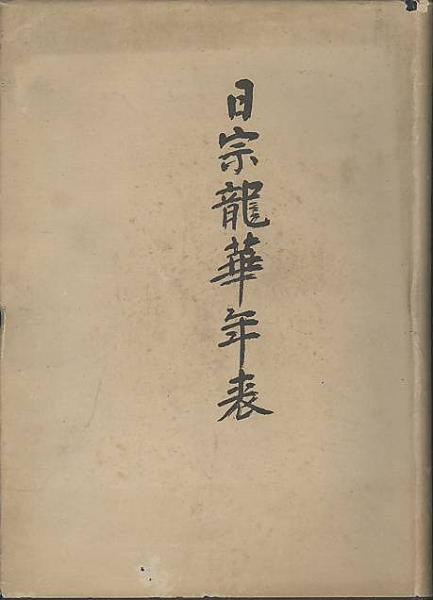 日宗龍華年表